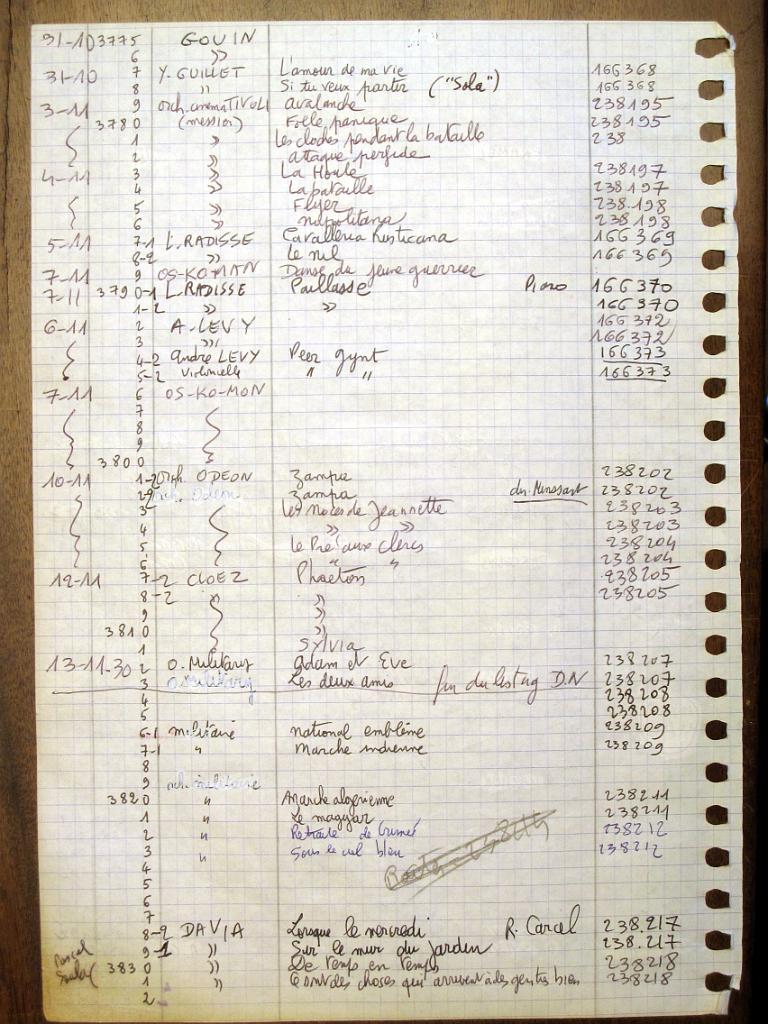 31-10 3775 GOUIN
6 »
31-10 7 Y. GUILLET L'amour de ma vie 166368
8 » Si tu veux partir ("Sola") 166368
3-11 9 orch. cinema TIVOLI avalanche 238195
3780 (messier) Folle panique 238195
1 » Les cloches pendant la bataille 238
2 » attaque perfide
4-11 3 » La Houle 238197
4 » La bataille 238197
5 » Flyer 238.198
6 » napolitana 238198
5-11 7-1 L. RADISSE Cavalleria Rusticana 166369
8-2 » Le nil 166369
7-11 9 OS-KO-MAN Danse du jeune guerrier
7-11 3790-1 L. RADISSE Paillasse Piano 166370
1-2 » » 166370
6-11 2 A. LEVY 166372
3 » 166372
4-2 andré LEVY Peer gynt 166373
5-2 violoncelle " " 166373
7-11 6 OS-KO-MON
7
8
9
3800
10-11 1-2 orch. ODEON Zampa 238202
2-9 orch. Odeon Zampa dir. Minssart 238202
3 Les noces de Jeannette 238203
4 » » 238203
5 Le Pré aux clercs 238204
6 " " 238204
12-11 7-2 CLOEZ Phaeton 238205
8-2 » » 238205
9 »
3810 »
1 SYLVIA
13-11-30 2 O. Military adam et Eve 238207
3 O. Military Les deux amis fin du listing D.N 238207
4 238208
5 238208
6-1 militaire national emblème 238209
7-1 " Marche indienne 238209
8
9 orch. militaire
3820 " Marche algerienne 238211
1 " Le magyar 238211
2 " Retraite de Crimée 238212
3 " Sous le ciel bleu 238212
4
5
6
7
8-2 DAVIA Lorsque le mercredi R. Carcel 238.217
9-1 » Sur le mur du jardin 238.217
Pascal
3830 » De temps en temps 238218
1 » Ce sont des choses qui arrivent à des gens très bien 238218
2